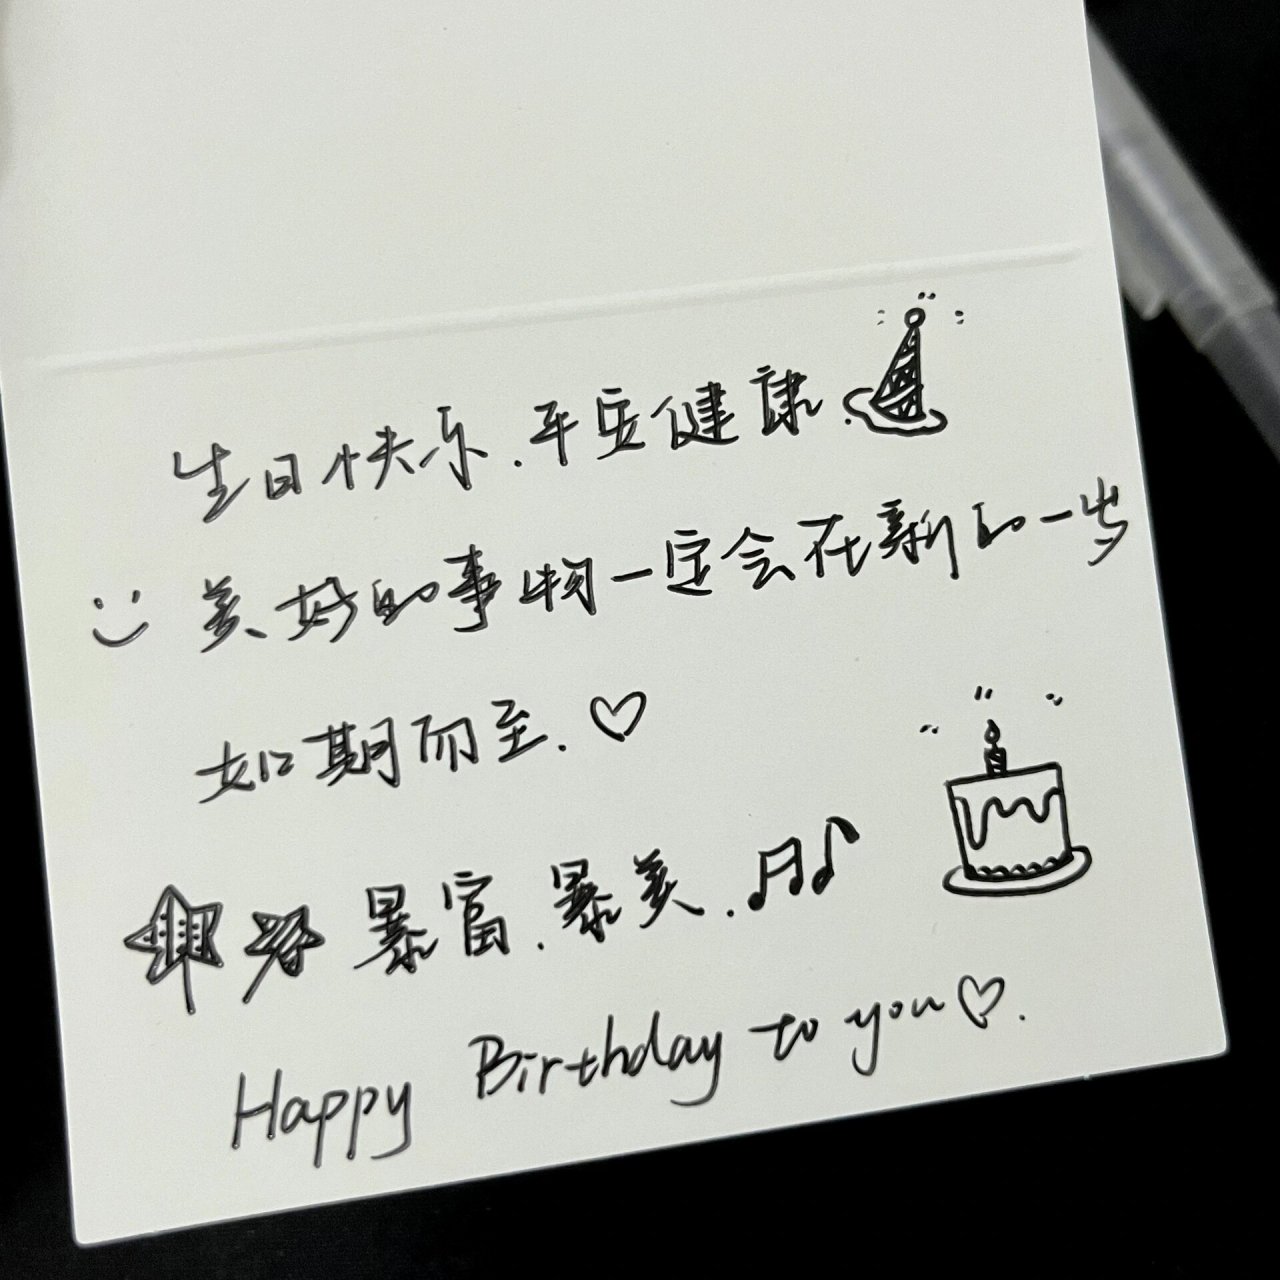 生日快乐.平安健康.
美好的事物一定会在新的一岁
如期而至.♡
暴富.暴美.
Happy Birthday to you♡.